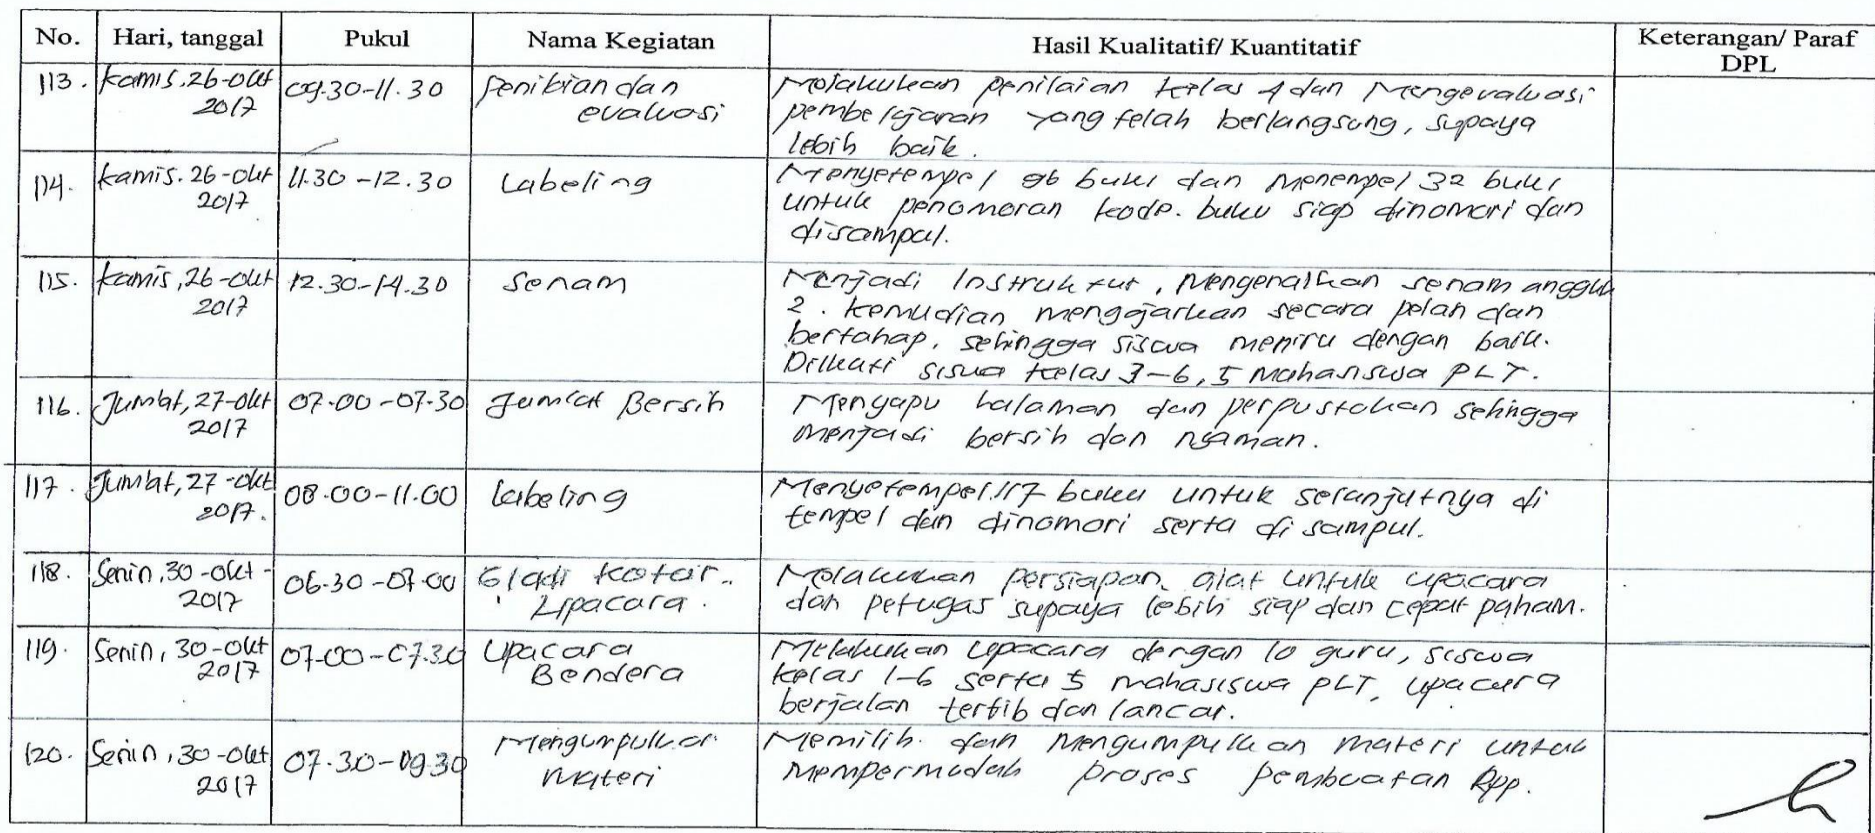 No. Hari, tanggal Pukul Nama Kegiatan Hasil Kualitatif/ Kuantitatif Keterangan/ Paraf DPL
113. Kamis, 26-Okt 2017 09.30-11.30 Penilaian dan evaluasi Melakukan penilaian kelas 4 dan Mengevaluasi
pembelajaran yang telah berlangsung, supaya
lebih baik.
114. Kamis. 26-Okt 2017 11.30-12.30 Labeling Menyetempel 96 buku dan Menempel 32 buku
untuk penomoran kode. buku siap dinomori dan
disampul.
115. Kamis, 26-Okt 2017 12.30-14.30 Senam Menjadi Instruktur, Mengenalkan senam angguk
2. kemudian mengajarkan secara pelan dan
bertahap, sehingga siswa meniru dengan baik.
Diikuti siswa kelas 3-6, 5 Mahasiswa PLT.
116. Jumlat, 27-Okt 2017 07.00-07.30 Jumlat Bersih Menyapu halaman dan perpustakaan sehingga
menjadi bersih dan nyaman.
117. Jumlat, 27-Okt 2017. 08.00-11.00 Labeling Menyetempel 117 buku untuk selanjutnya di
tempel dan dinomori serta di sampul.
118. Senin, 30-Okt-2017 06.30-07.00 Gladi kotor Upacara. Melakukan persiapan alat untuk upacara
dan petugas supaya lebih siap dan cepat paham.
119. Senin, 30-Okt 2017 07.00-07.30 Upacara Bendera Melakukan upacara dengan 10 guru, siswa
kelas 1-6 serta 5 mahasiswa PLT, upacara
berjalan tertib dan lancar.
120. Senin, 30-Okt 2017 07.30-09.30 Mengumpulkan Materi Memilih dan Mengumpulkan materi untuk
Mempermudah proses pembuatan Rpp.